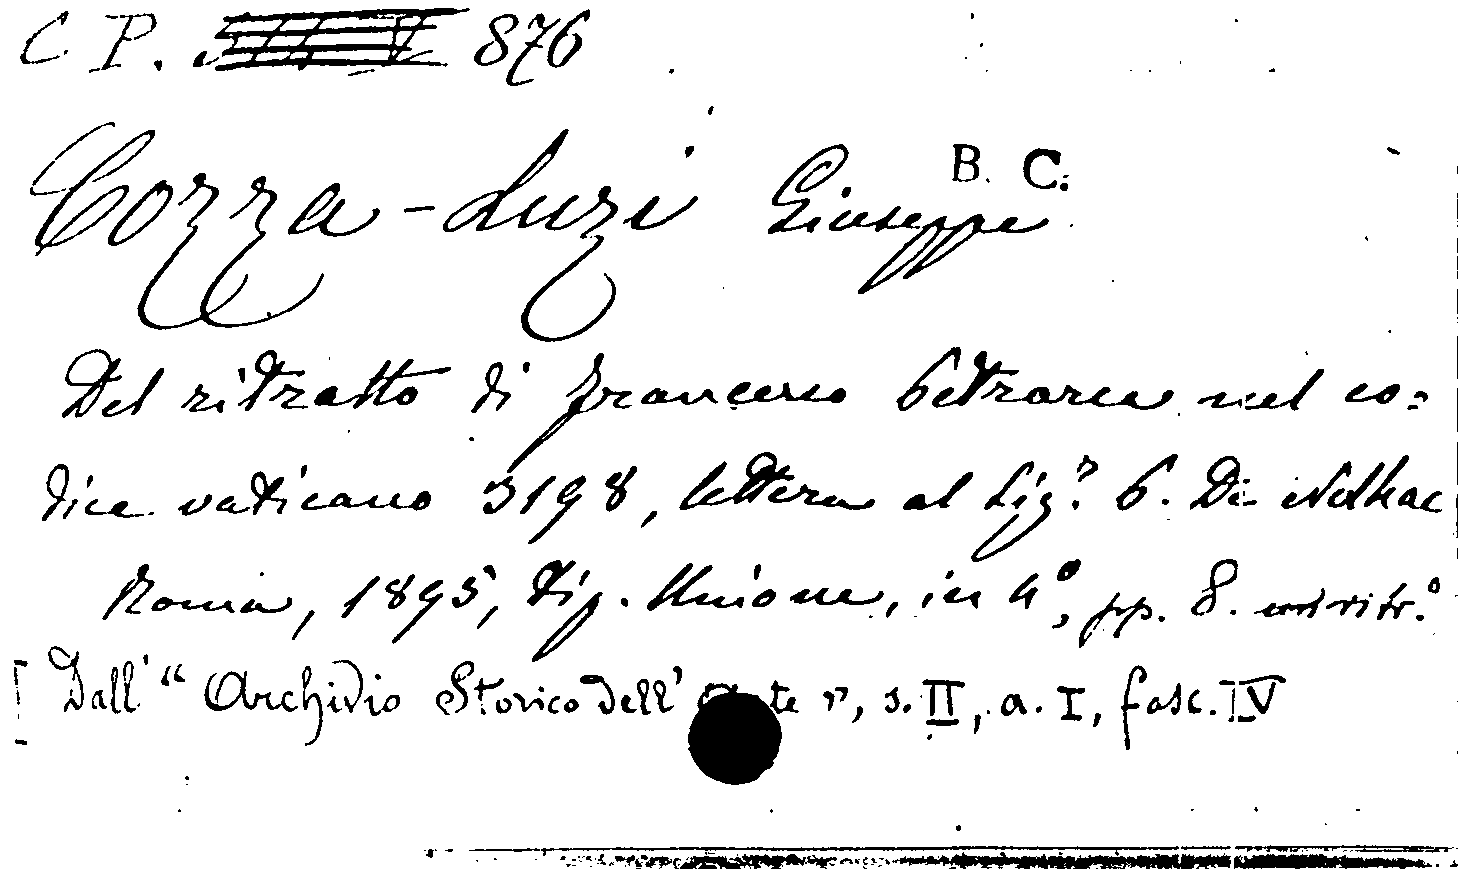 C P. 876
B. C.
Cozza-Luzi Giuseppe
Del ritratto di Francesco Petrarca nel co=
dice vaticano 3198, lettera al Sig.r P. De Nolhac
Roma, 1895, tip. Unione, in 4°, pp. 8. con ritr.°
[ Dall' "Archivio Storico dell' Arte", s. II, a. I, fasc. IV